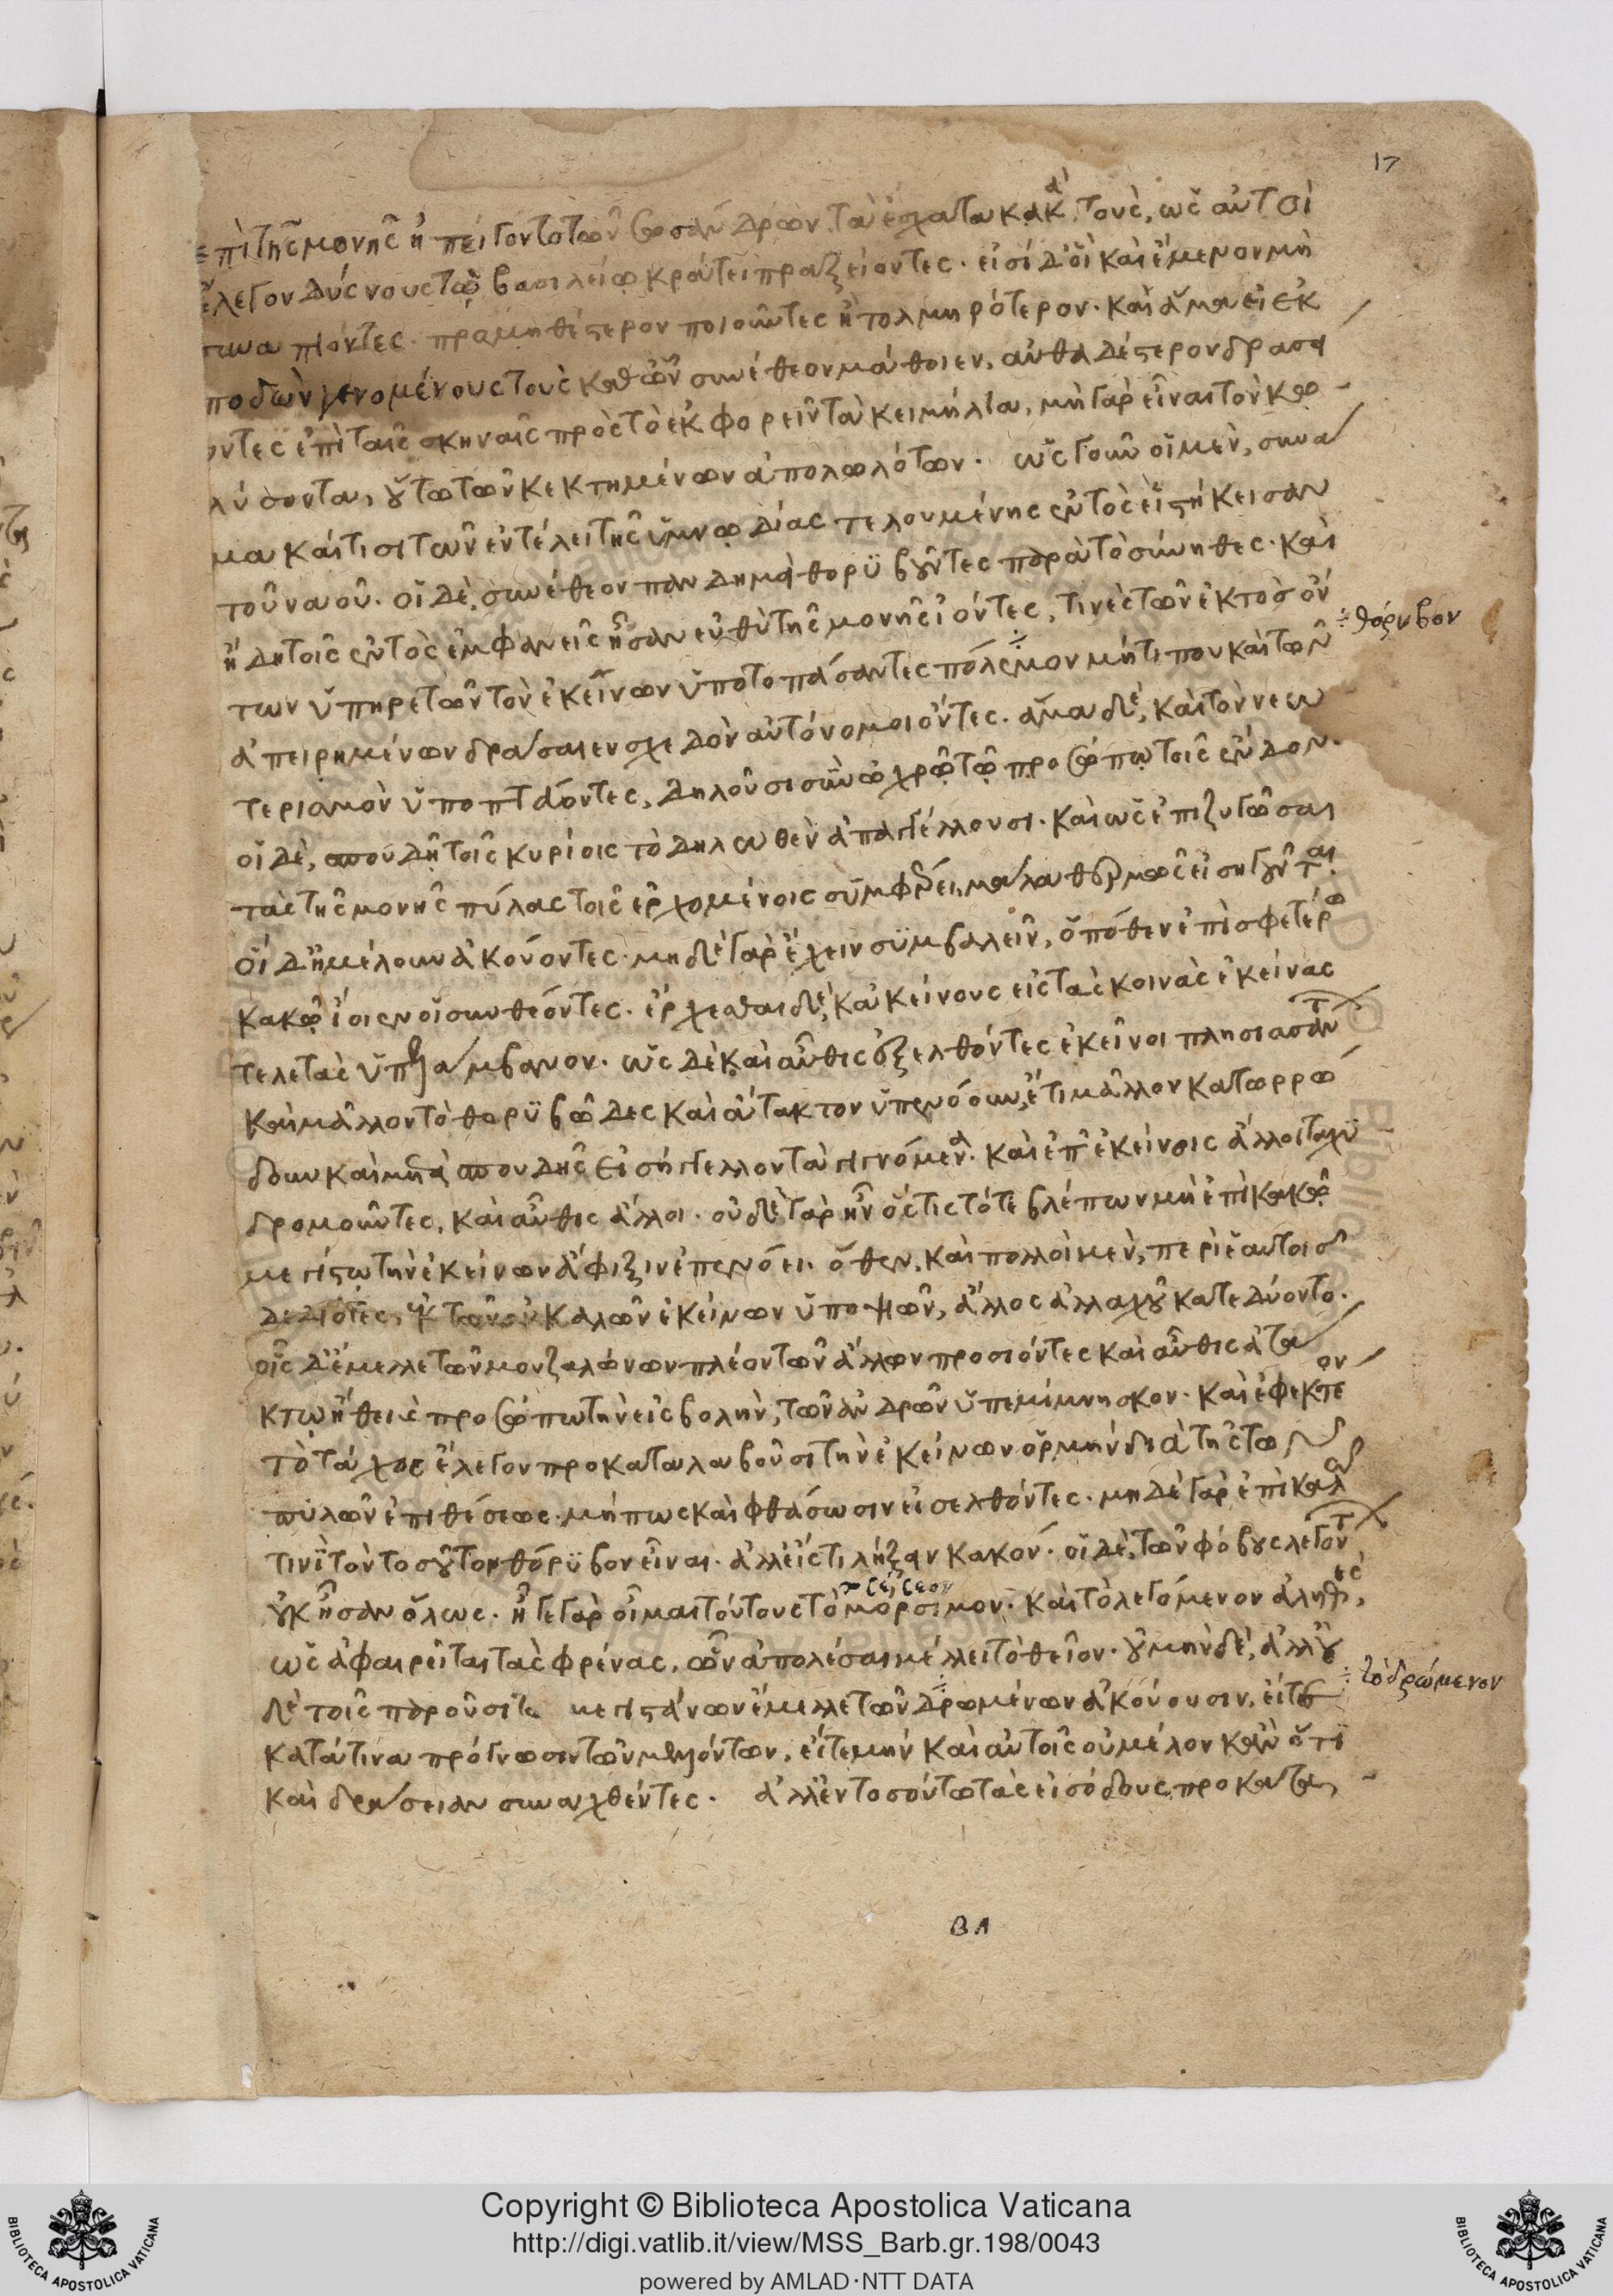 17
ἐπὶ τῆς μονῆς ἠπείγοντο τῶν ἀνδρῶν τὰ ἔσχατα κακά τοὺς, ὡς αὐτοὶ
ἔλεγον δύσνους τῷ βασιλείῳ κράτει πραξείοντες. εἰσὶ δ' οἳ καὶ ἔμενον μὴ
προμηθέστερον ποιοῦντες ἢ τολμηρότερον. καὶ ἅμα εἰ ἐκ
ποδὼν γενομένους τοὺς καθ' ὧν συνέθεον μάθοιεν, αὐθαδέστερον δρασα
οντες ἐπὶ ταῖς σκηναῖς πρὸς τὸ ἐκφορεῖν τὰ κειμήλια, μὴ γὰρ εἶναι τὸν κω
λύσοντα, οὕτω τῶν κεκτημένων ἀπολωλότων. ὡς γοῦν οἱ μὲν, συνα
μα καί τισι τῶν ἐντέλει τῆς ὑμνῳδίας τελουμένης ἐντὸς εἱστήκεισαν
τοῦ ναοῦ. οἱ δὲ, συνέθεον πανδημὰ θορυβοῦντες παρὰ τὸ σύνηθες. καὶ
ἤδη τοῖς ἐντὸς ἐμφανεῖς ἦσαν εὐθὺ τῆς μονῆς ἰόντες, τινὲς τῶν ἐκτὸς ὄν
÷ θόρυβον
των ὑπηρετῶν τὸν ἐκείνων ὑποτοπάσαντες πόλεμον μήτι που καὶ τῶν
ἀπειρημένων δράσαιεν σχεδὸν αὐτόνομοι ὄντες. ἅμα δὲ, καὶ τὸν νεω
τερισμὸν ὑποπτάοντες, δηλοῦσι σὺν ὠχρῷ τῷ προσώπῳ τοῖς ἔνδον.
οἱ δὲ, σπουδῇ τοῖς κυρίοις τὸ δηλωθὲν ἀπαγγέλλουσι. καὶ ὡς ἐπιζυγῶσαι
τὰς τῆς μονῆς πύλας τοῖς ἐρχομένοις συμφέρει, μάλα θερμῶς εἰσηγοῦνται.
οἱ δ' ἠμέλουν ἀκούοντες. μηδὲ γὰρ ἔχειν συμβαλεῖν, ὁπόθεν ἐπὶ σφετέρῳ
κακῷ ἴοιεν οἱ συνθέοντες. ἔρχεσθαι δὲ, κἀκείνους εἰς τὰς κοινὰς ἐκείνας
τελετὰς ὑπελάμβανον. ὡς δὲ καὶ αὖθις ἐξελθόντες ἐκεῖνοι πλησιασάντων
καὶ μᾶλλον τὸ θορυβῶδες καὶ ἄτακτον ὑπενόουν, ἔτι μᾶλλον κατωρρώ
δουν καὶ μετὰ σπουδῆς εἰσήγγελλον τὰ γιγνόμενα. καὶ ἐπ' ἐκείνοις ἄλλοι ταχυ
δρομοῦντες, καὶ αὖθις ἄλλοι. οὐδὲ γὰρ ἦν ὅστις τότε βλέπων μὴ ἐπὶ κακῷ
μεγίστῳ τὴν ἐκείνων ἄφιξιν ἐπενόει. ὅθεν, καὶ πολλοὶ μὲν, περὶ ἑαυτοῖς
δεδιότες, ἐκ τῶν οὐ καλῶν ἐκείνων ὑποψιῶν, ἄλλος ἀλλαχοῦ κατεδύοντο.
οἷς δ' ἔμελλε τῶν μουζαλώνων πλέον τῶν ἄλλων προσιόντες καὶ αὖθις ἀτά
κτῳ ἤθει προσώπῳ τὴν εἰσβολὴν, τῶν ἀνδρῶν ὑπεμίμνησκον. καὶ ἐφεκτέον
τὸ τάχος ἔλεγον προκαταλαβοῦσι τὴν ἐκείνων ὁρμὴν διὰ τῆς τῶν
πυλῶν ἐπιθέσεως. μήπως καὶ φθάσωσιν εἰσελθόντες. μηδὲ γὰρ ἐπὶ καλῷ
τινὶ τὸν τοσοῦτον θόρυβον εἶναι. ἀλλ' εἴς τι λῆξαν κακόν. οἱ δὲ, τῶν φόβους λεγόντων
οὐκ ἦσαν ὅλως. ἦγε γὰρ οἶμαι τούτους τὸ μόρσιμον. καὶ τὸ λεγόμενον ἀληθὲς,
ὡς ἀφαιρεῖται τὰς φρένας, ὧν ἀπολέσαι μέλλει τὸ θεῖον. οὐ μὴν δὲ, ἀλλ' οὐ
÷ τὸ δρώμενον
δὲ τοῖς παροῦσι μεγιστάνων ἔμελλε τῶν δρωμένων ἀκούουσιν, εἴτε
κατά τινα πρόγνωσιν τῶν μελλόντων, εἴτε μὴν καὶ αὐτοῖς οὐ μέλον κἂν ὅτι
καὶ δράσειαν συναχθέντες. ἀλλ' ἐν τοσούτῳ τὰς εἰσόδους προκατα
Copyright © Biblioteca Apostolica Vaticana
http://digi.vatlib.it/view/MSS_Barb.gr.198/0043
powered by AMLAD·NTT DATA
BIBLIOTECA APOSTOLICA VATICANA
BIBLIOTECA APOSTOLICA VATICANA